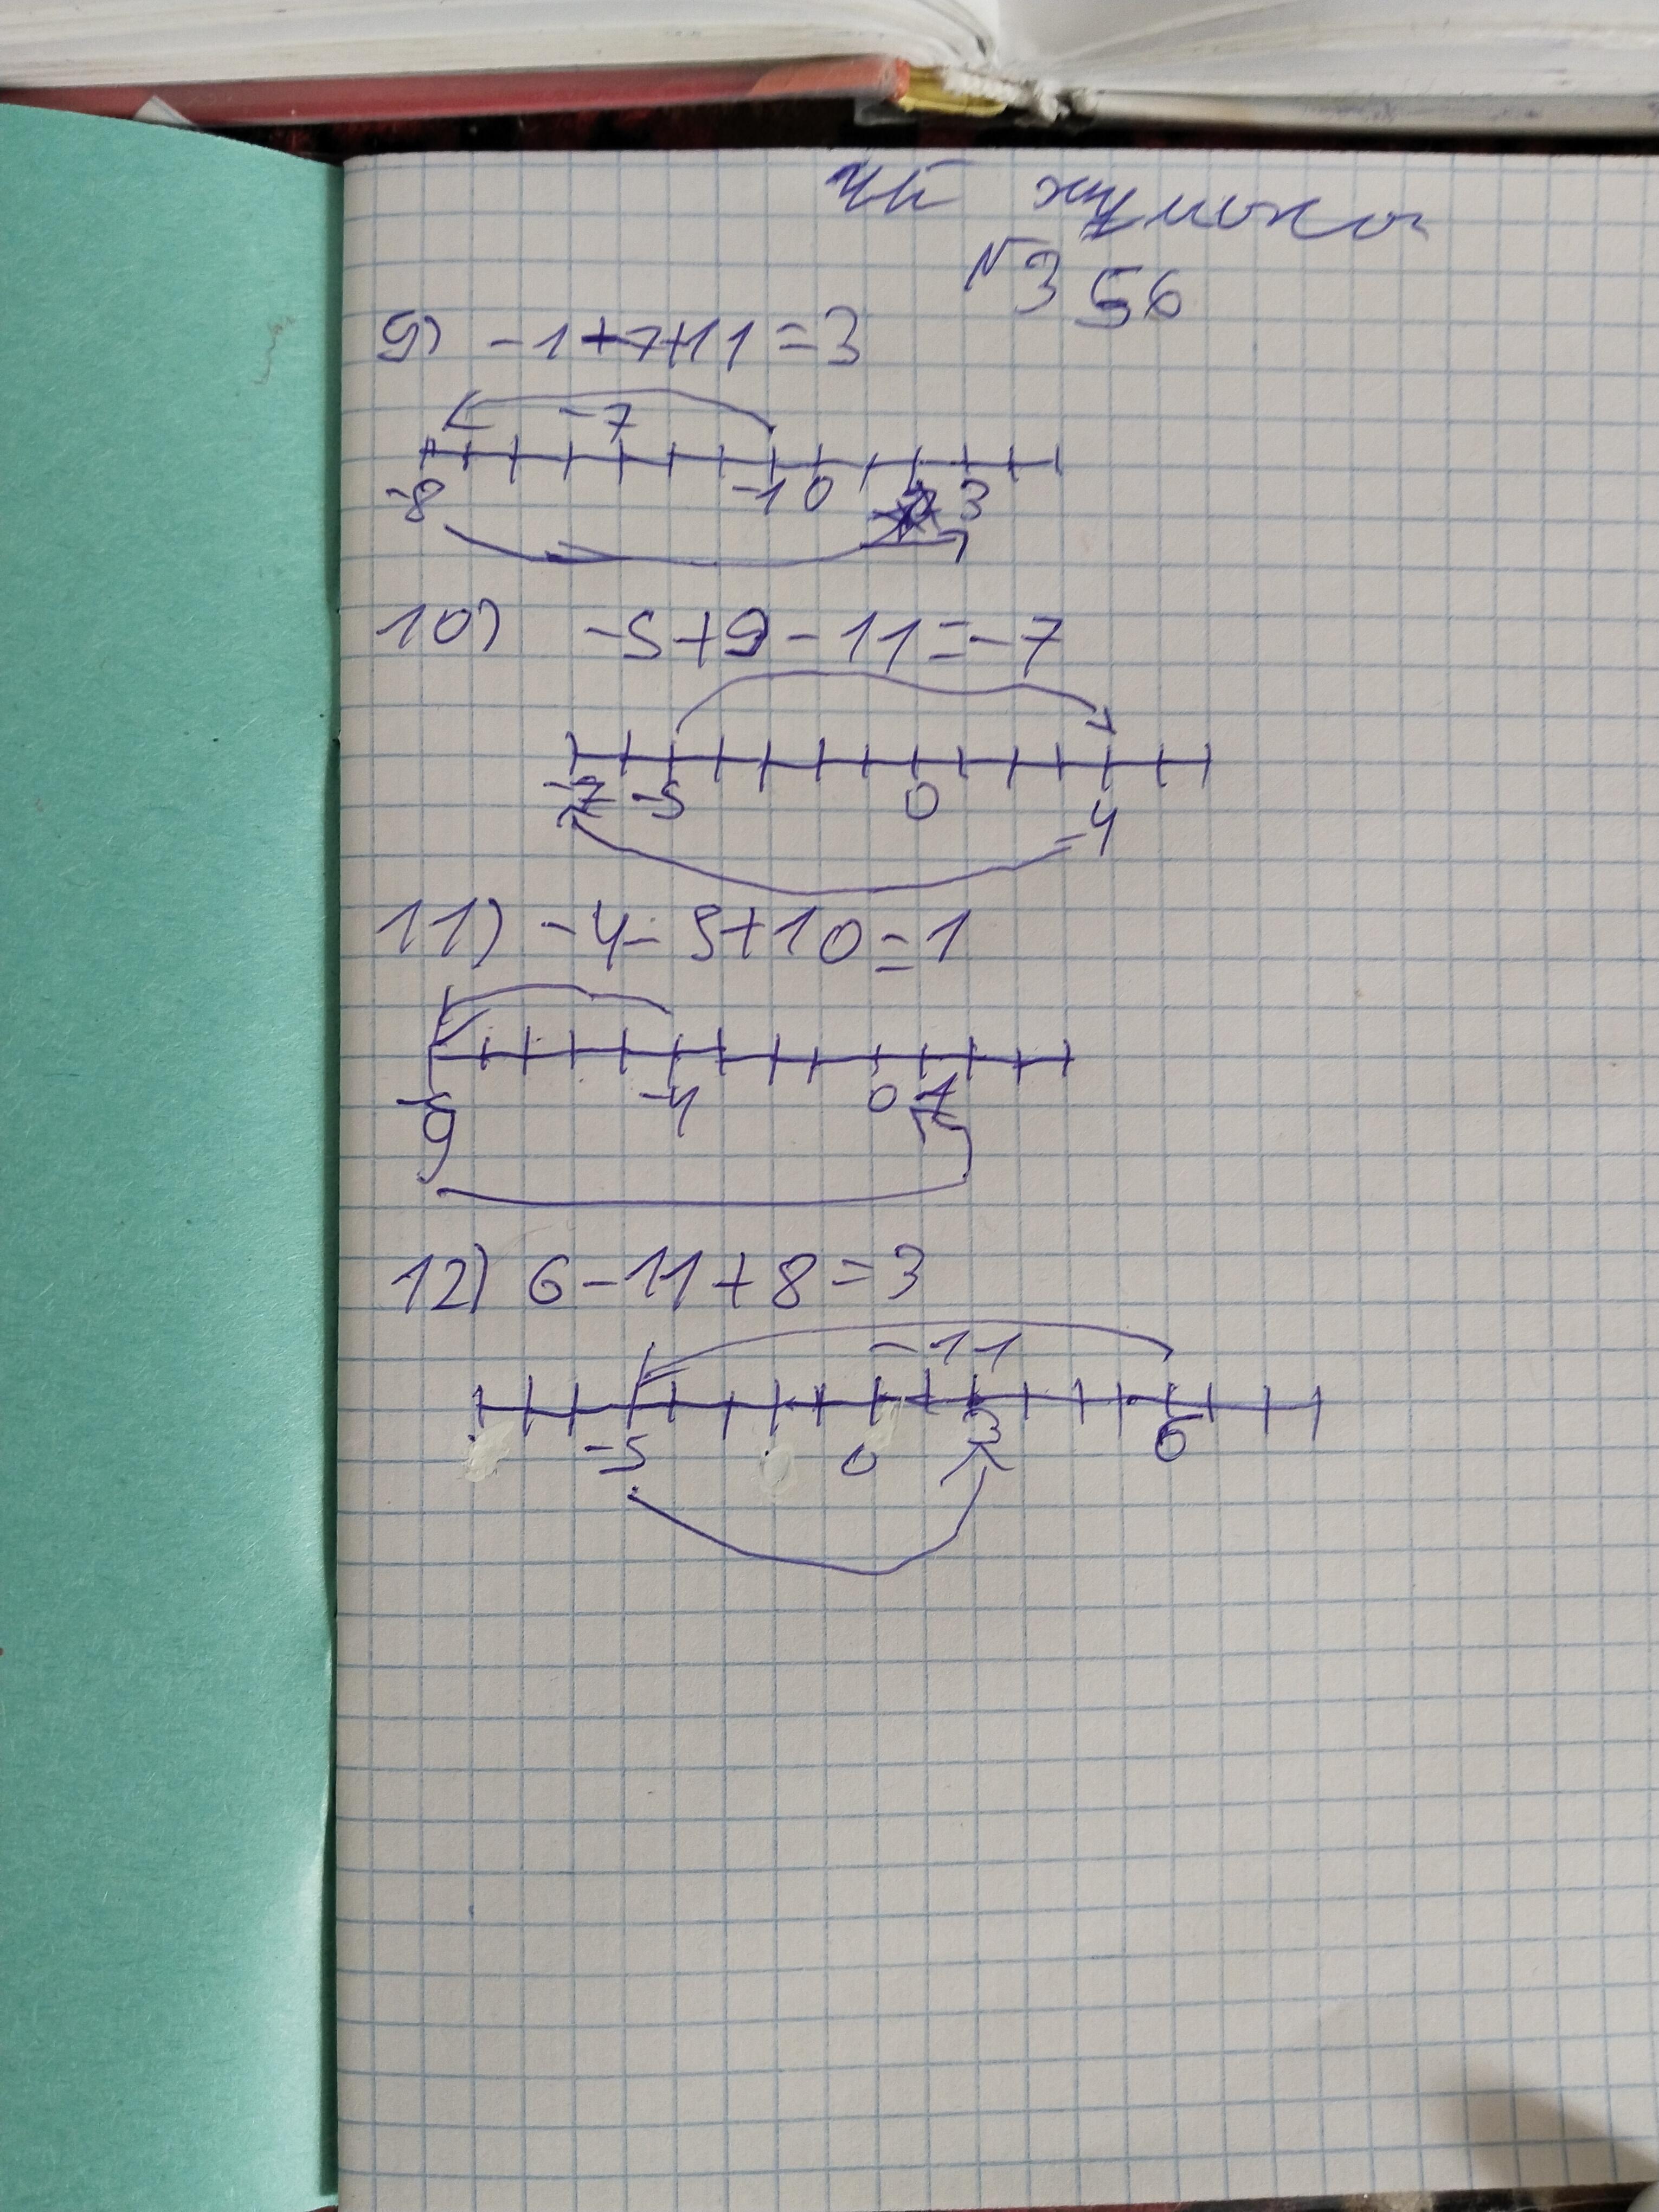 №356
9) -1+7+11=3
-7
-8 -1 0 3
10) -5+9-11=-7
-7 -5 0 -4
11) -4-5+10=1
-9 -4 0 1
12) 6-11+8=3
-11
-5 0 3 6